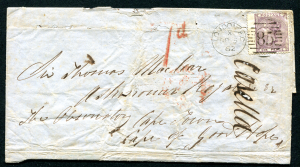 1d
85
Sir Thomas Maclear
Astronomer Royal
Casella
The Observatory Cape Town
Cape of Good Hope